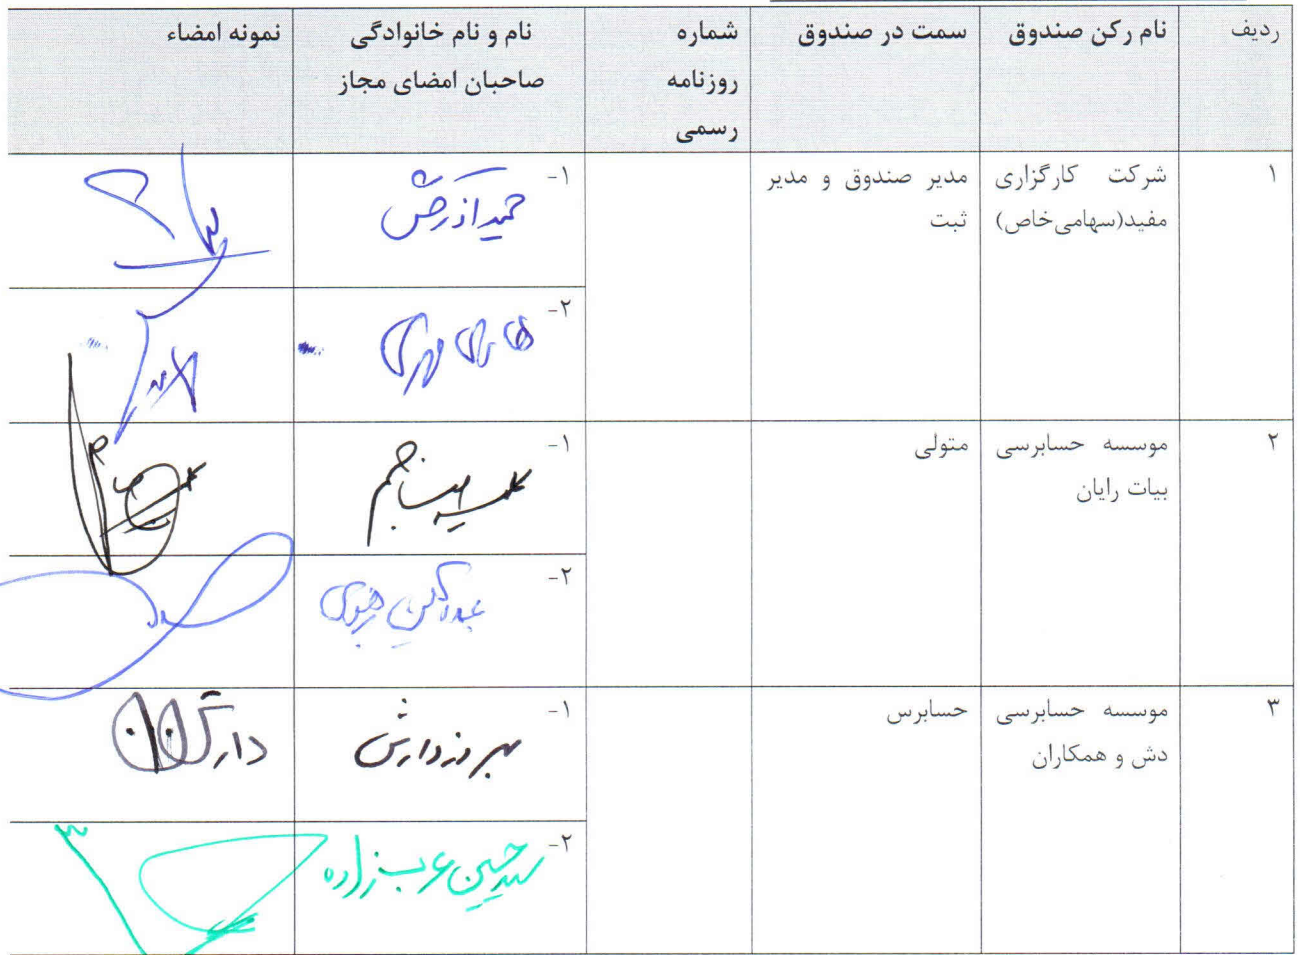 ردیف
نام رکن صندوق
سمت در صندوق
شماره
روزنامه
رسمی
نام و نام خانوادگی
صاحبان امضای مجاز
نمونه امضاء
۱
شرکت کارگزاری
مفید(سهامی‌خاص)
مدیر صندوق و مدیر
ثبت
۱-
حمید آذرخش
۲-
هادی مهری
۲
موسسه حسابرسی
بیات رایان
متولی
۱-
۲-
رضوی
۳
موسسه حسابرسی
دش و همکاران
حسابرس
۱-
بهروز دارش
دارش
۲-
سیدحسین عرب زاده